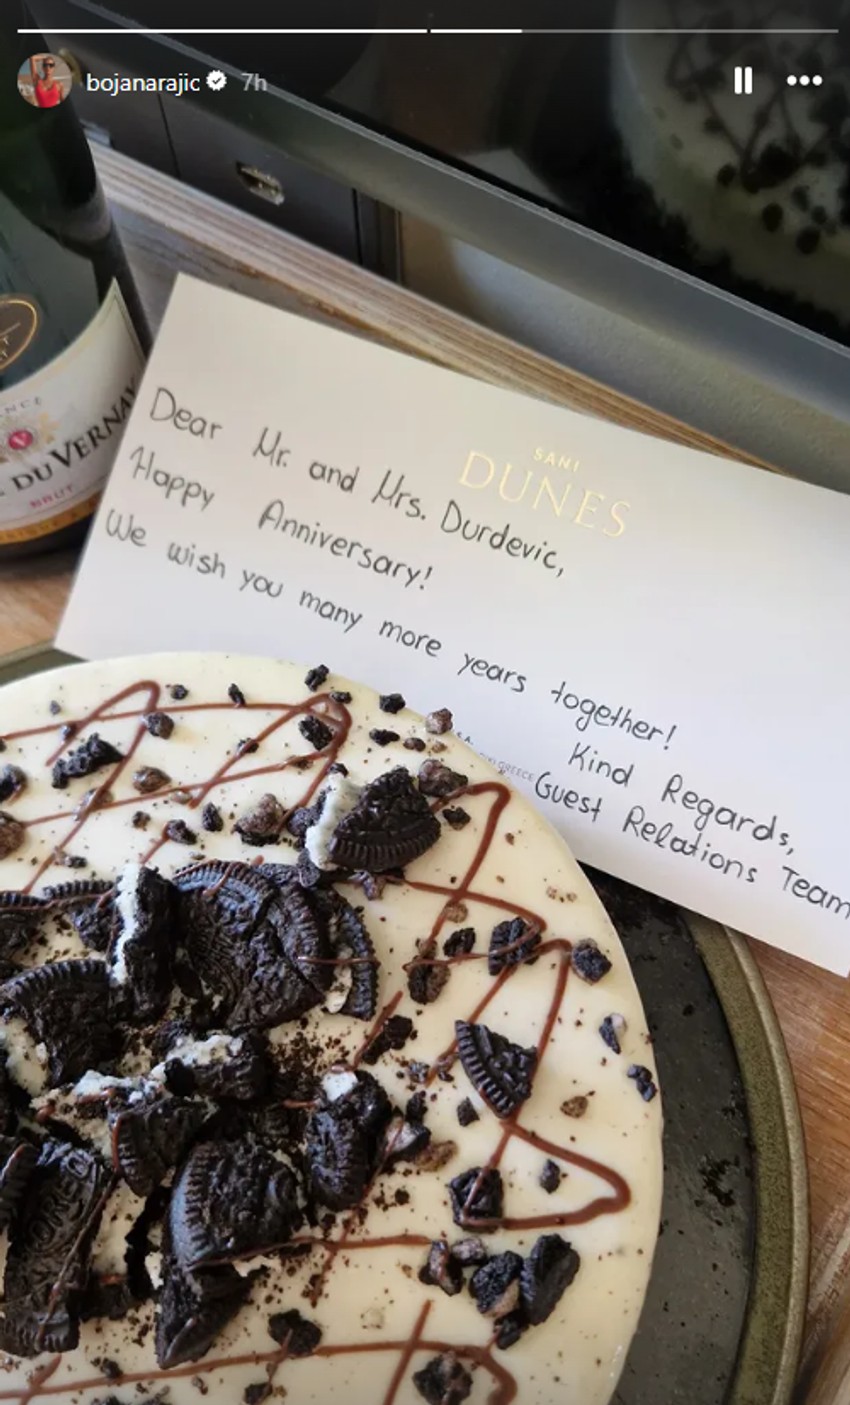 bojanarajic 7h
NCE
DU VERNAY
BRUT
SANI
DUNES
Dear Mr. and Mrs. Durdevic,
Happy Anniversary!
We wish you many more years together!
Kind Regards,
Guest Relations Team
GREECE
OREO